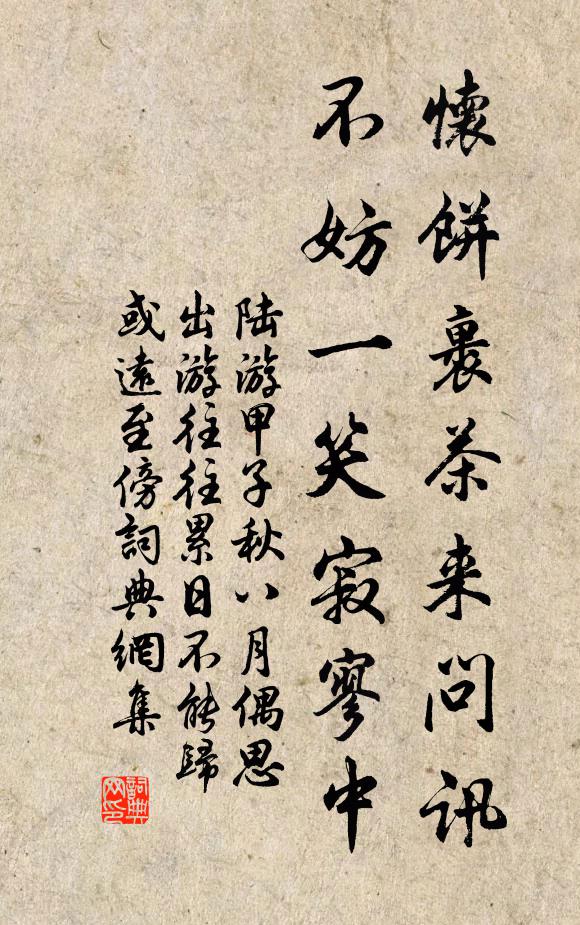 懷餅裹茶来問訊
不妨一笑寂寥中
陆游甲子秋八月偶思
出游往往累日不能歸
或遠至傍詞典網集
詞典网印